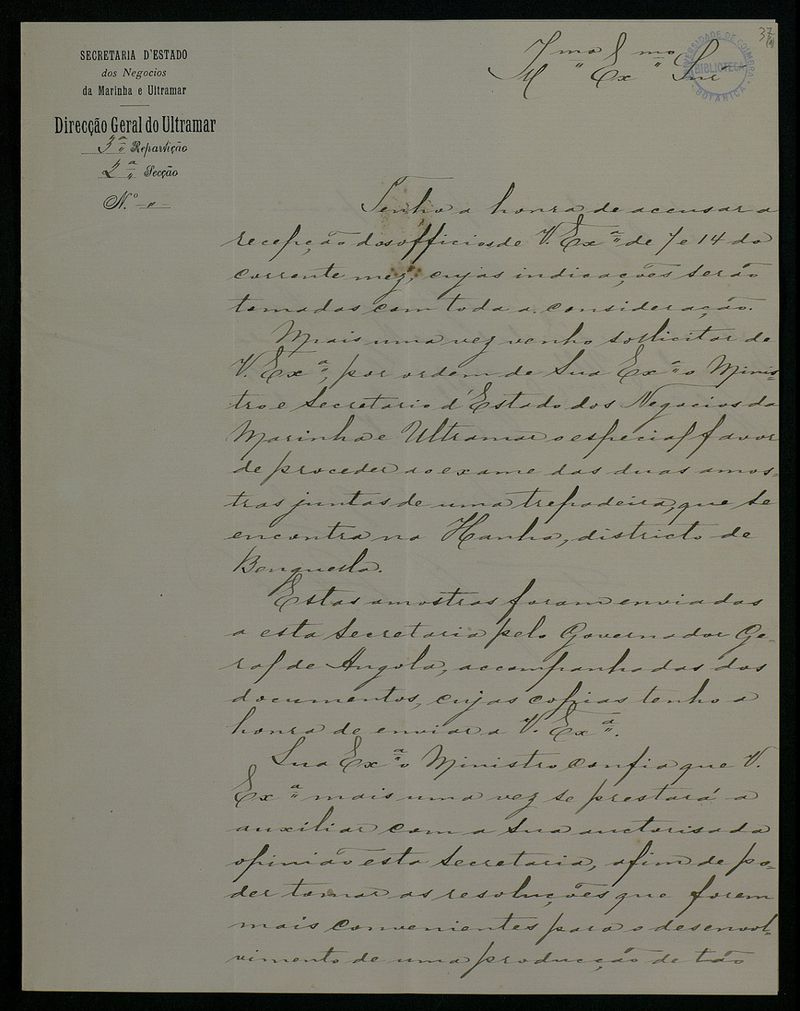 SECRETARIA D'ESTADO
dos Negocios
da Marinha e Ultramar
Direcção Geral do Ultramar
3ª Repartição
2ª Secção
N.º
37
UNIVERSIDADE DE COIMBRA
BIBLIOTECA
BOTANICA
Illmo e Exmo Snr
Tenho a honra de accusar a
recepção dos officios de V. Exª de 7 e 14 do
corrente mez, cujas indicações serão
tomadas com toda a consideração.
Mais uma vez venho sollicitar de
V. Exª, por ordem de Sua Exª o Minis-
tro e Secretario d'Estado dos Negocios da
Marinha e Ultramar o especial favor
de proceder ao exame das duas amos-
tras juntas de uma trepadeira, que se
encontra no Hanha, districto de
Benguella.
Estas amostras foram enviadas
a esta Secretaria pelo Governador Ge-
ral de Angola, accompanhadas dos
documentos, cujas copias tenho a
honra de enviar a V. Exª.
Sua Exª o Ministro confia que V.
Exª mais uma vez se prestará a
auxiliar com a sua auctorisada
opinião esta Secretaria, afim de po-
der tomar as resoluções que forem
mais convenientes para o desenvol-
vimento de uma producção de tão